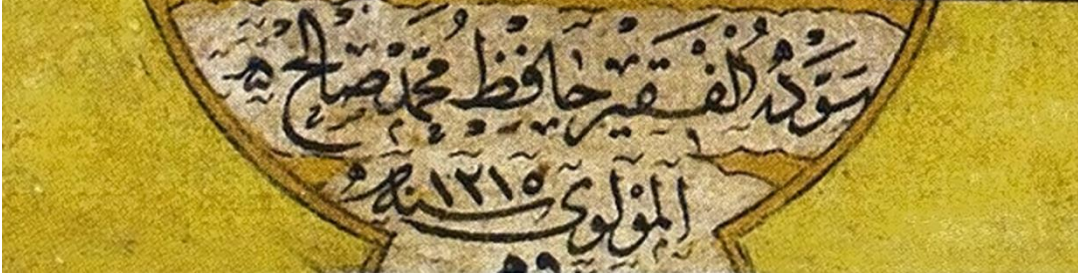 سَوَّدَهُ الْفَقِير حَافِظ مُحَمَّد صَالِح
الْمَوْلَوِي سنه ١٢١٥